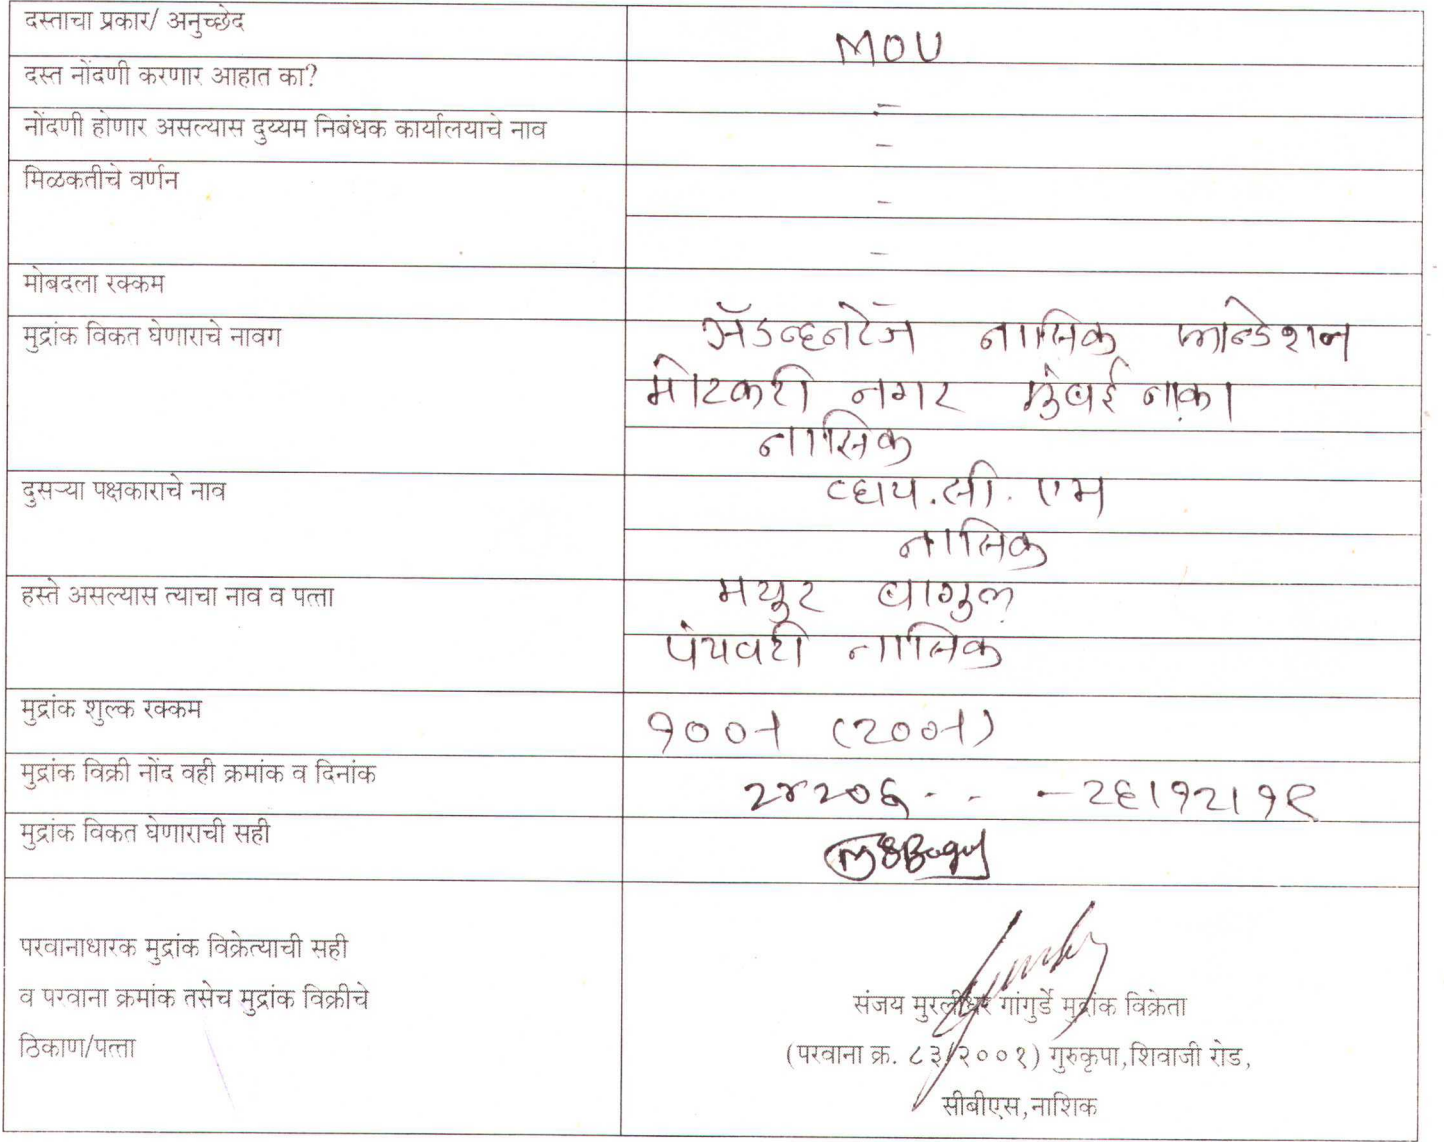 दस्ताचा प्रकार/ अनुच्छेद
MOU
दस्त नोंदणी करणार आहात का?
-
नोंदणी होणार असल्यास दुय्यम निबंधक कार्यालयाचे नाव
-
मिळकतीचे वर्णन
-
-
मोबदला रक्कम
मुद्रांक विकत घेणाराचे नावग
ॲडव्हनटेज नासिक फान्डेशन
मोटकरी नगर मुंबई नाका
नासिक
दुसऱ्या पक्षकाराचे नाव
व्हाय.सी. एम
नासिक
हस्ते असल्यास त्याचा नाव व पत्ता
मयुर बागुल
पंचवटी नासिक
मुद्रांक शुल्क रक्कम
१००/- (२००/-)
मुद्रांक विक्री नोंद वही क्रमांक व दिनांक
२४२०६ - - - २६/१२/१९
मुद्रांक विकत घेणाराची सही
परवानाधारक मुद्रांक विक्रेत्याची सही
व परवाना क्रमांक तसेच मुद्रांक विक्रीचे
ठिकाण/पत्ता
संजय मुरलीधर गांगुर्डे मुद्रांक विक्रेता
(परवाना क्र. ८३/२००१) गुरुकृपा,शिवाजी रोड,
सीबीएस,नाशिक